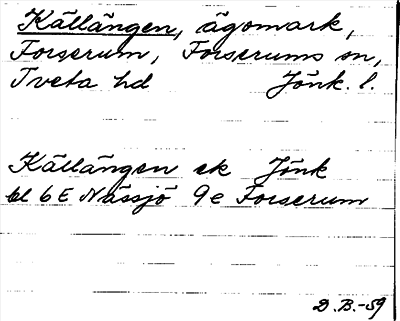 Källängen, ägomark,
Forserum, Forserums sn,
Tveta hd Jönk. l.
Källängen ek Jönk
bl 6E Nässjö 9e Forserum
D.B.-59